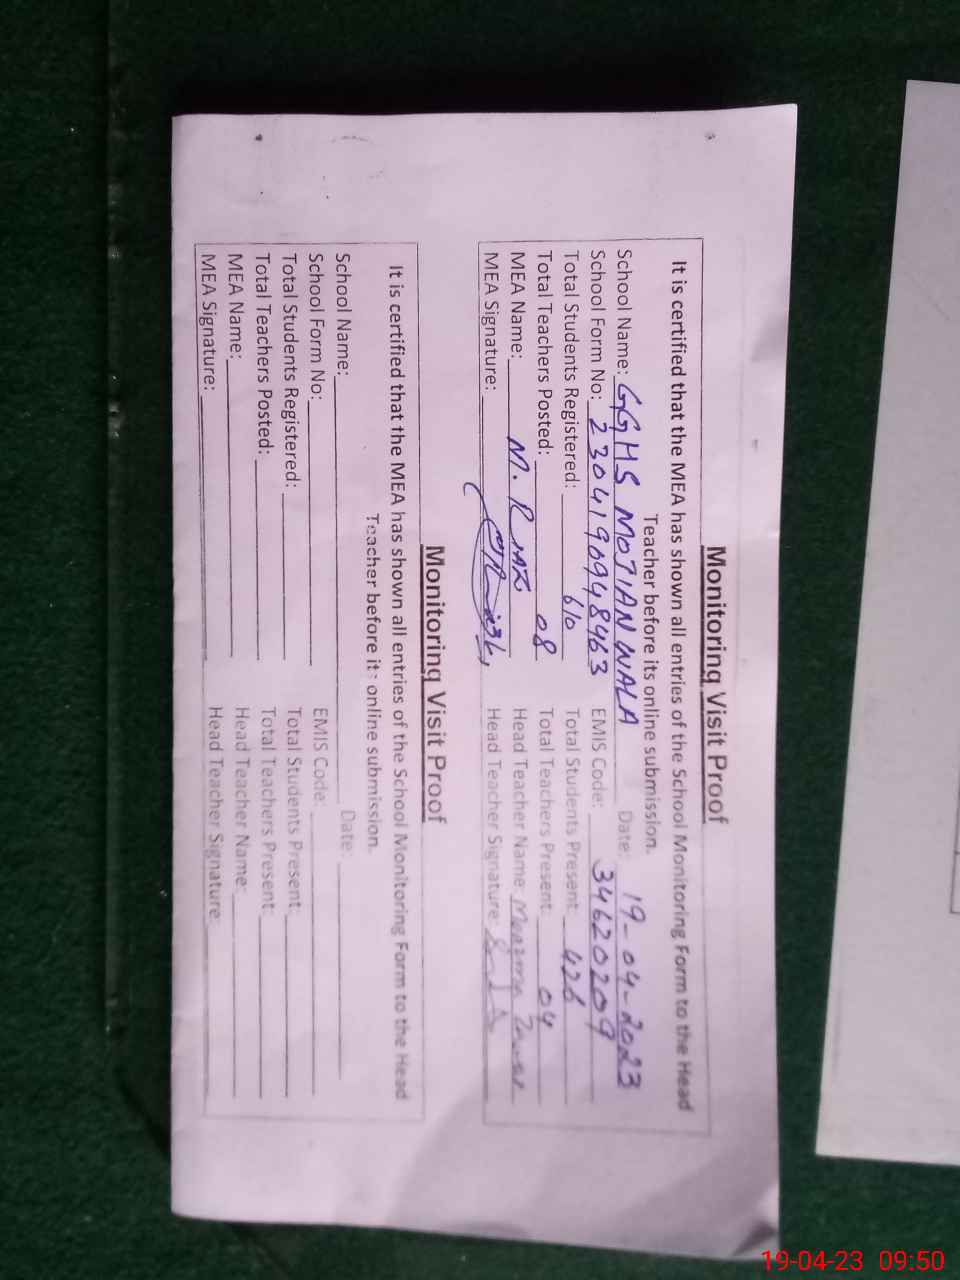 Monitoring Visit Proof
It is certified that the MEA has shown all entries of the School Monitoring Form to the Head
Teacher before its online submission.
School Name: GGHS MOJIANWALA Date: 19-04-2023
School Form No: 2304190948463 EMIS Code: 34620209
Total Students Registered: 610 Total Students Present: 426
Total Teachers Posted: 08 Total Teachers Present: 04
MEA Name: M. Riaz Head Teacher Name:
MEA Signature: Head Teacher Signature:
Monitoring Visit Proof
It is certified that the MEA has shown all entries of the School Monitoring Form to the Head
Teacher before its online submission.
School Name: Date:
School Form No: EMIS Code:
Total Students Registered: Total Students Present:
Total Teachers Posted: Total Teachers Present:
MEA Name: Head Teacher Name:
MEA Signature: Head Teacher Signature:
19-04-23 09:50